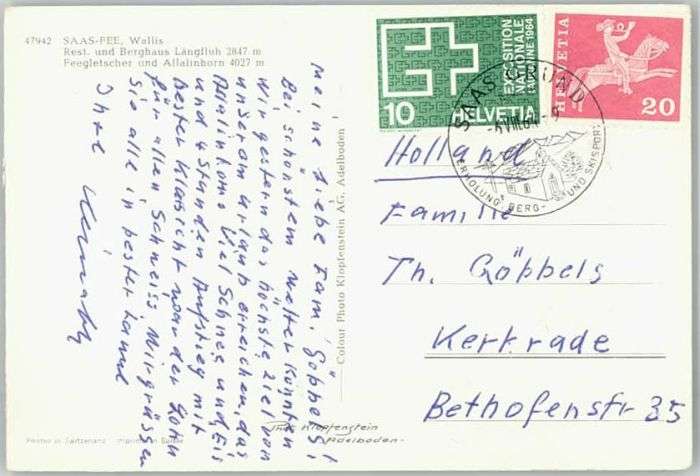 47942 SAAS-FEE, Wallis
Rest. und Berghaus Längfluh 2847 m
Feegletscher und Allalinhorn 4027 m
Meine liebe Fam. Göbbels!
Bei schönstem Wetter konnten
Wir gestern das höchste Ziel von
unserem Urlaub erreichen, das
Allalinhorn. Viel Schnee und Eis
und 4 Stunden Aufstieg mit
bester Klarsicht war der Lohn
für allen Schweiss. Wir grüssen
Sie alle in bester Laune
Ihre
Colour Photo Klopfenstein AG, Adelboden
Thos Klopfenstein
Adelboden
Printed in Switzerland Imprimé en Suisse
EXPOSITION
NATIONALE
LAUSANNE 1964
10 HELVETIA
HELVETIA
20
SAAS-GRUND
ERHOLUNG BERG- UND SKISPORT
Holland
Familie
Th. Göbbels
Kerkrade
Bethofenstr 35